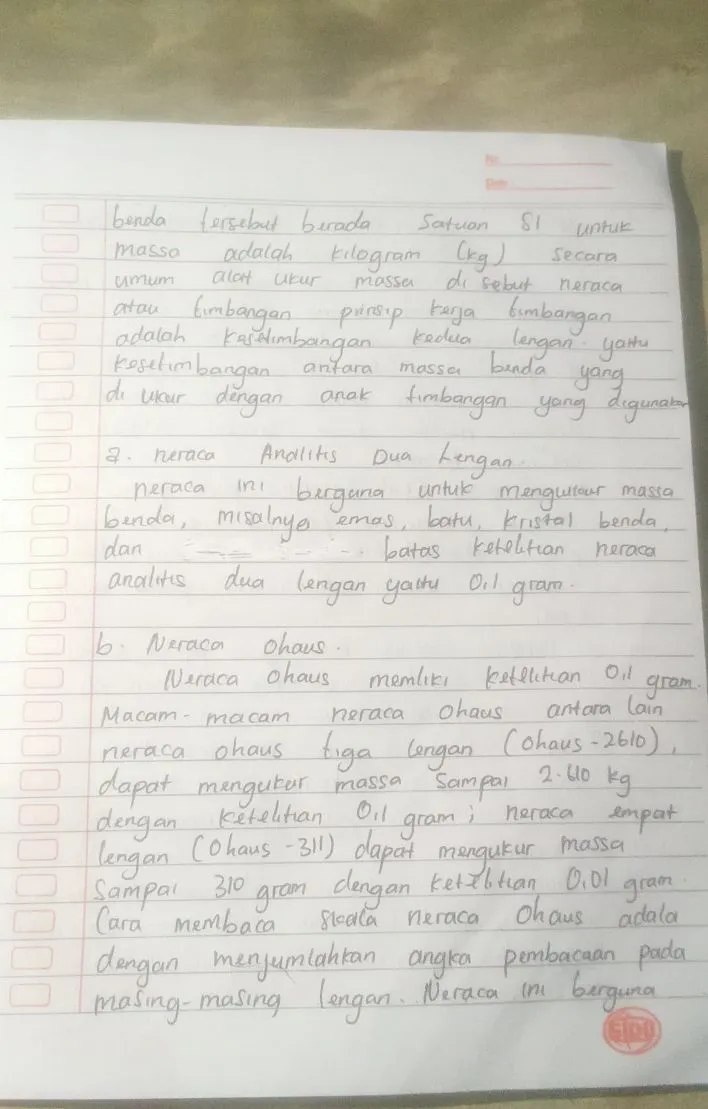 No
Date
benda tersebut berada Satuan SI untuk
massa adalah kilogram (kg) secara
umum alat ukur massa di sebut neraca
atau timbangan prinsip kerja timbangan
adalah kasetimbangan kedua lengan. yaitu
kesetimbangan antara massa benda yang
di ukur dengan anak timbangan yang digunakan
a. neraca Analitis Dua Lengan.
neraca ini berguna untuk mengukur massa
benda, misalnya emas, batu, kristal benda,
dan batas ketelitian neraca
analitis dua lengan yaitu 0,1 gram.
b. Neraca Ohaus.
Neraca Ohaus memliki ketelitian 0,1 gram.
Macam-macam neraca Ohaus antara lain
neraca ohaus tiga lengan (Ohaus-2610),
dapat mengukur massa Sampai 2.610 kg
dengan ketelitian 0,1 gram; neraca empat
lengan (Ohaus-311) dapat mengukur massa
Sampai 310 gram dengan ketelitian 0,01 gram.
Cara membaca skala neraca Ohaus adala
dengan menjumlahkan angka pembacaan pada
masing-masing lengan. Neraca ini berguna